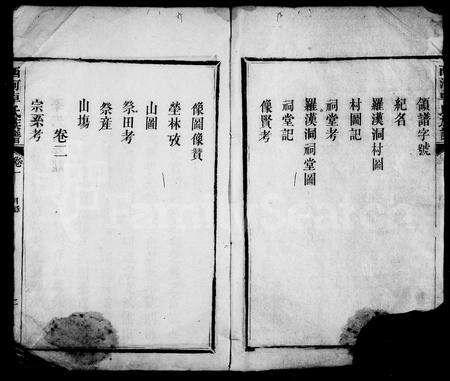 領譜字號
紀名
羅漢洞村圖
村圖記
祠堂考
羅漢洞祠堂圖
祠堂記
像賢考
像圖像贊
塋林攷
山圖
祭田考
祭産
山塲
卷二
宗系考
卷一